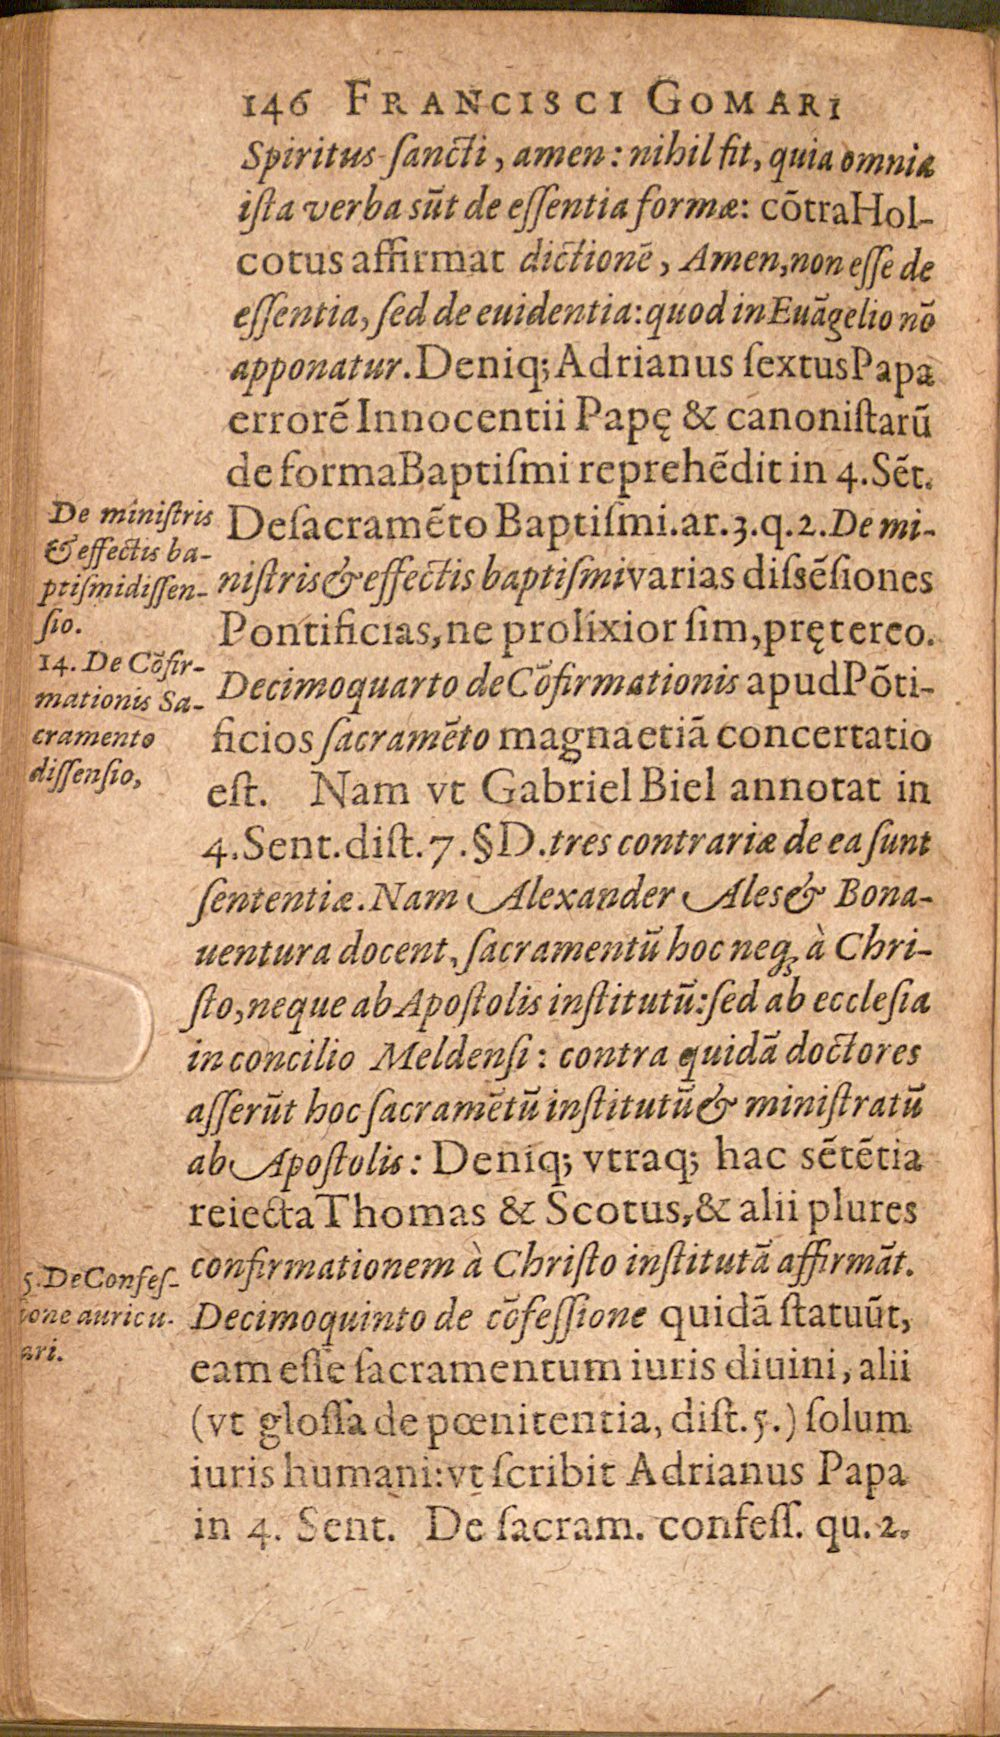 146 FRANCISCI GOMARI
Spiritus ſancti, amen: nihil fit, quia omnia
iſta verba sūt de eſſentia formæ: cōtra Hol-
cotus affirmat dictionē, Amen, non eſſe de
eſſentia, ſed de euidentia: quod in Euāgelio nō
apponatur. Deniq; Adrianus ſextus Papa
errorē Innocentii Papę & canoniſtarū
de forma Baptiſmi reprehēdit in 4. Sēt.
De sacramēto Baptiſmi. ar. 3. q. 2. De mi-
niſtris & effectis baptiſmi varias diſsēſiones
Pontificias, ne prolixior ſim, pręterco.
Decimoquarto de Cōfirmationis apud Pōti-
ficios ſacramēto magna etiā concertatio
eſt. Nam vt Gabriel Biel annotat in
4. Sent. diſt. 7. §D. tres contrariæ de ea ſunt
ſententiæ. Nam Alexander Ales & Bona-
uentura docent, ſacramentū hoc neq; à Chri-
ſto, neque ab Apoſtolis inſtitutū: ſed ab eccleſia
in concilio Meldenſi: contra quidā doctores
aſſerūt hoc ſacramētū inſtitutū & miniſtratū
ab Apoſtolis: Deniq; vtraq; hac sētētia
reiecta Thomas & Scotus, & alii plures
confirmationem à Chriſto inſtitutā affirmāt.
Decimoquinto de cōfeſſione quidā ſtatuūt,
eam eſſe ſacramentum iuris diuini, alii
(vt gloſſa de pœnitentia, diſt. 5.) ſolum
iuris humani: vt ſcribit Adrianus Papa
in 4. Sent. De ſacram. confeſſ. qu. 2.
De miniſtris
& effectis ba-
ptiſmi diſſen-
ſio.
14. De Cōfir-
mationis Sa-
cramento
diſſenſio,
5. De Confeſ-
ione auricu-
ari.